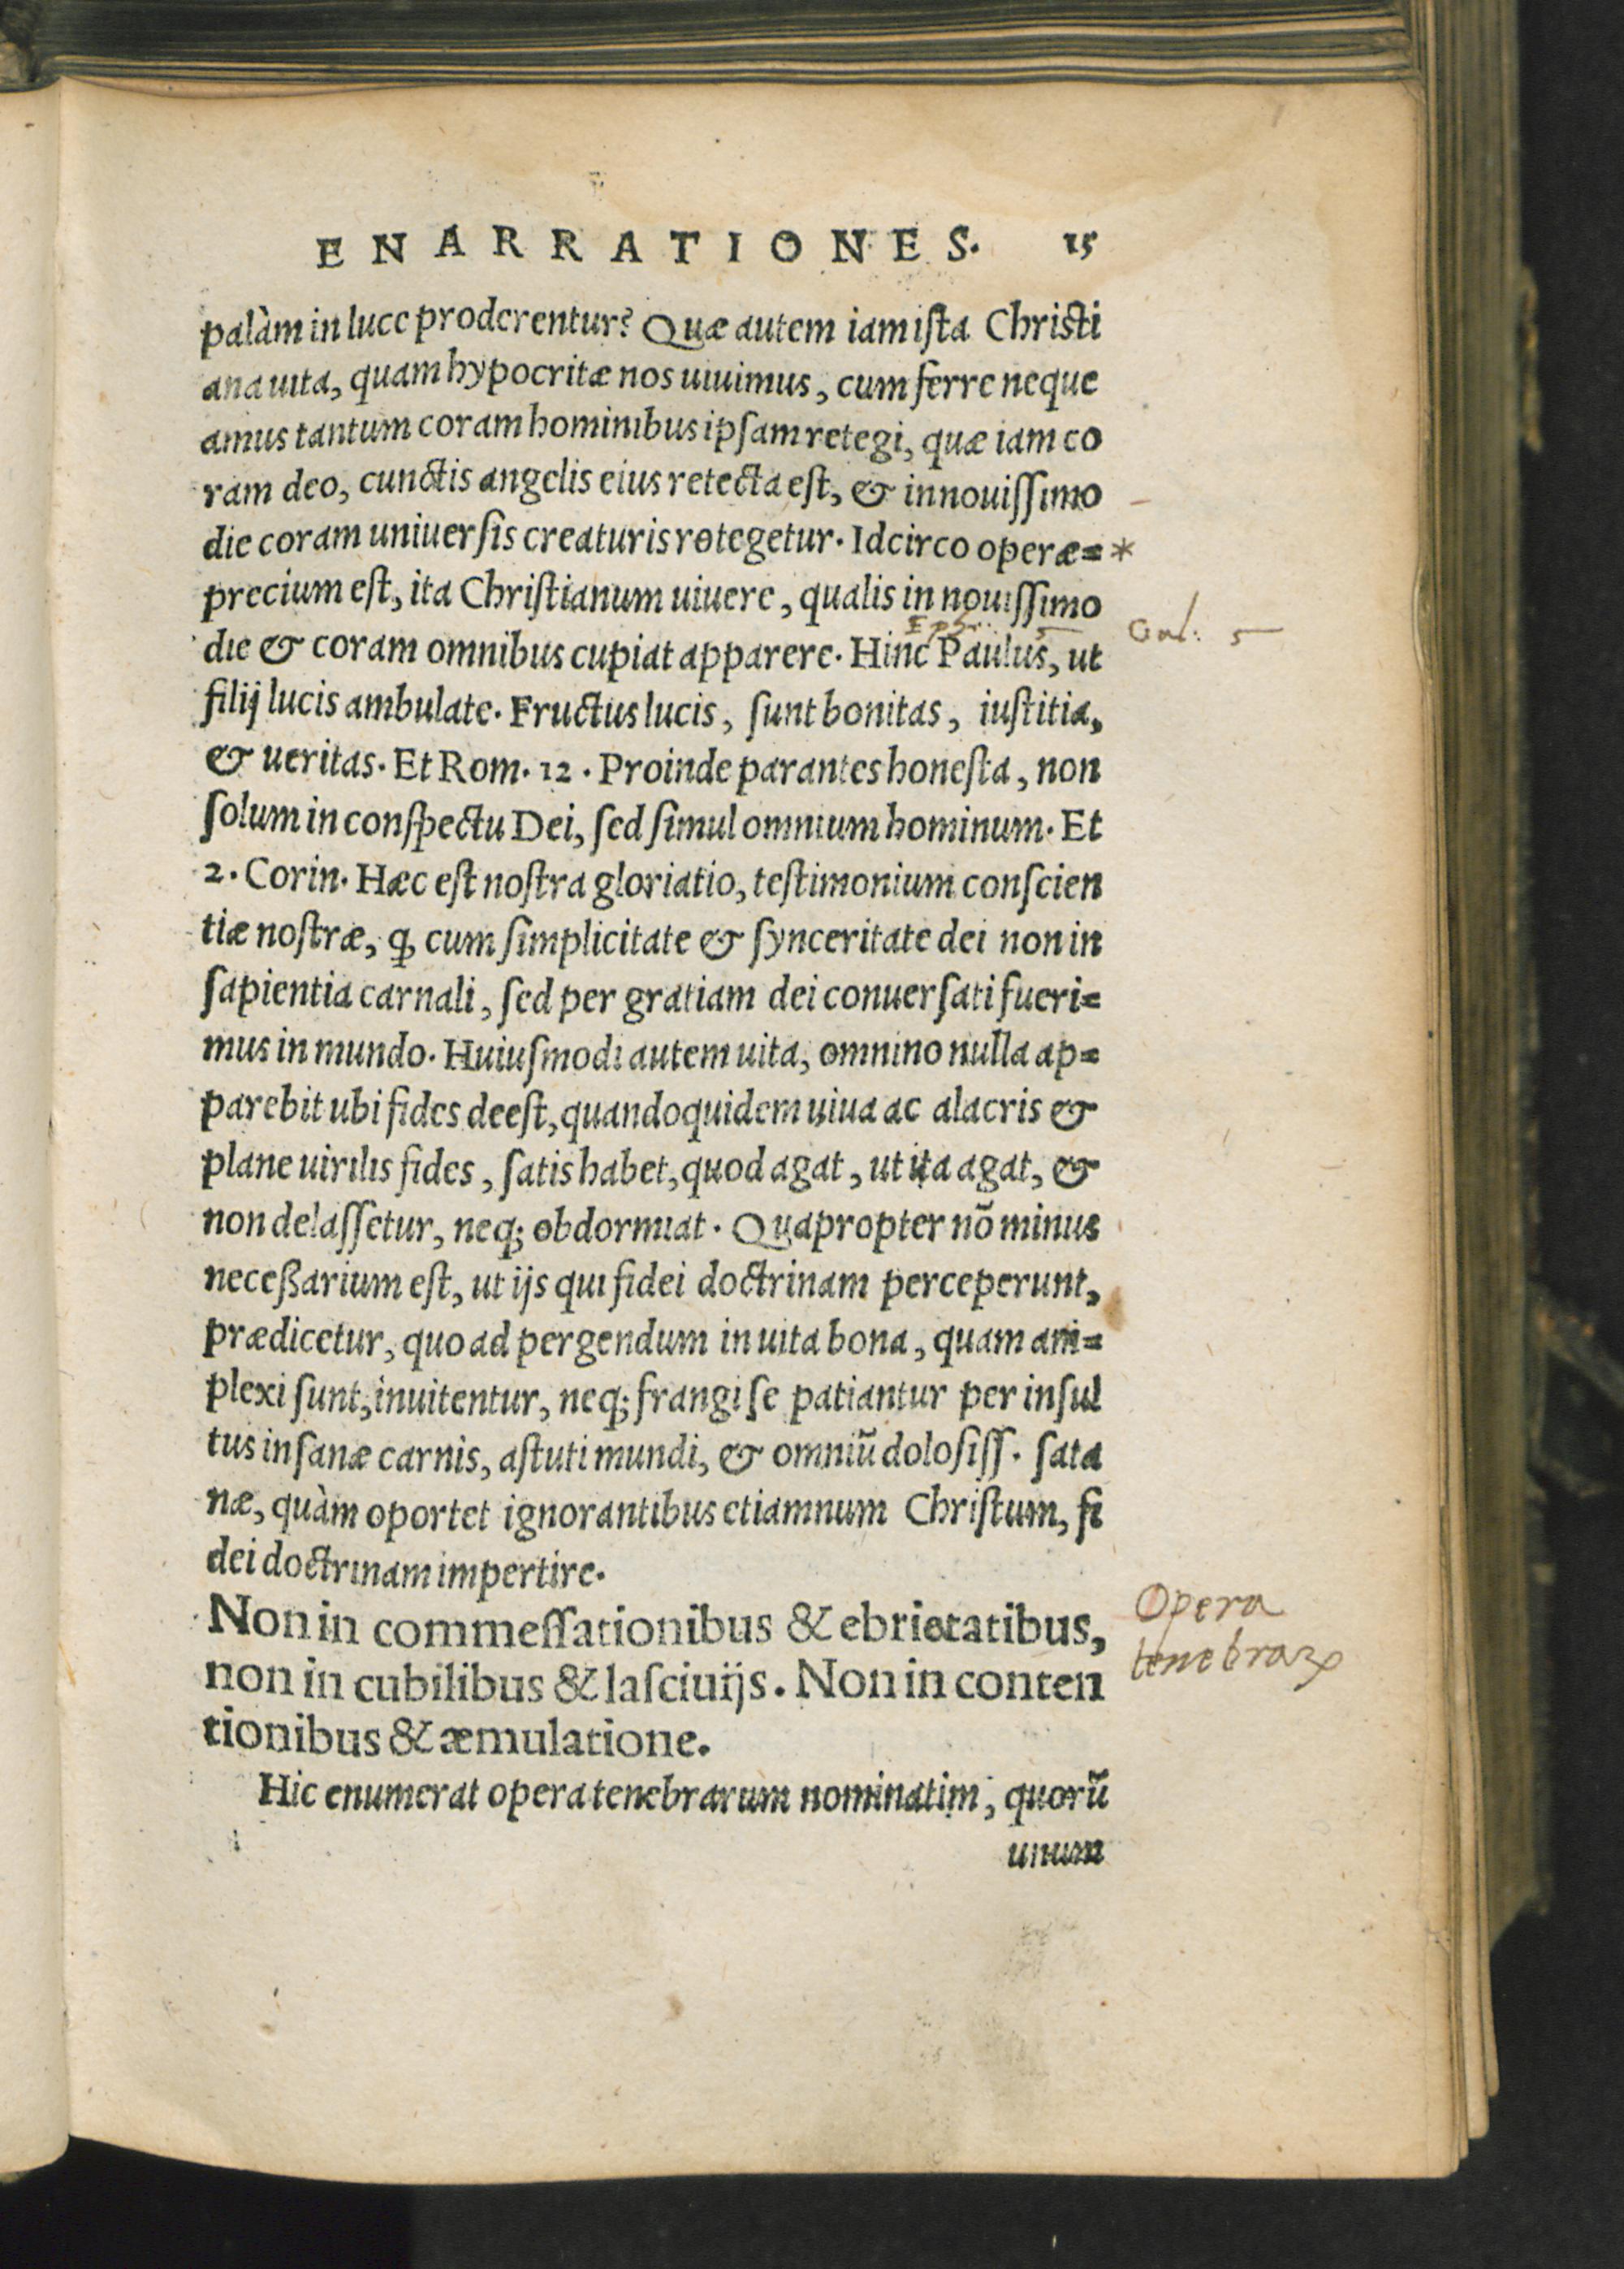 ENARRATIONES. 15
palàm in luce proderentur? Quæ autem iam iſta Chriſti
ana uita, quam hypocritæ nos uiuimus, cum ferre neque
amus tantum coram hominibus ipſam retegi, quæ iam co
ram deo, cunctis angelis eius retecta eſt, & in nouiſſimo
die coram uniuerſis creaturis retegetur. Idcirco operæ= *
precium eſt, ita Chriſtianum uiuere, qualis in nouiſſimo
Eph. 5 Gal: 5
die & coram omnibus cupiat apparere. Hinc Paulus, ut
filij lucis ambulate. Fructus lucis, ſunt bonitas, iuſtitia,
& ueritas. Et Rom. 12. Proinde parantes honeſta, non
ſolum in conſpectu Dei, ſed ſimul omnium hominum. Et
2. Corin. Hæc eſt noſtra gloriatio, teſtimonium conſcien
tiæ noſtræ, ꝙ cum ſimplicitate & ſynceritate dei non in
ſapientia carnali, ſed per gratiam dei conuerſati fueri=
mus in mundo. Huiuſmodi autem uita, omnino nulla ap=
parebit ubi fides deeſt, quandoquidem uiua ac alacris &
plane uirilis fides, ſatis habet, quod agat, ut ita agat, &
non delaſſetur, neq; obdormiat. Quapropter nō minus
neceßarium eſt, ut ijs qui fidei doctrinam perceperunt,
prædicetur, quo ad pergendum in uita bona, quam am=
plexi ſunt, inuitentur, neq; frangi ſe patiantur per inſul
tus inſanæ carnis, aſtuti mundi, & omniū doloſiſſ. ſata
næ, quàm oportet ignorantibus etiamnum Chriſtum, fi
dei doctrinam impertire.
Non in commeſſationibus & ebrietatibus, Opera
non in cubilibus & laſciuijs. Non in conten tenebraꝝ
tionibus & æmulatione.
Hic enumerat opera tenebrarum nominatim, quorū
unum